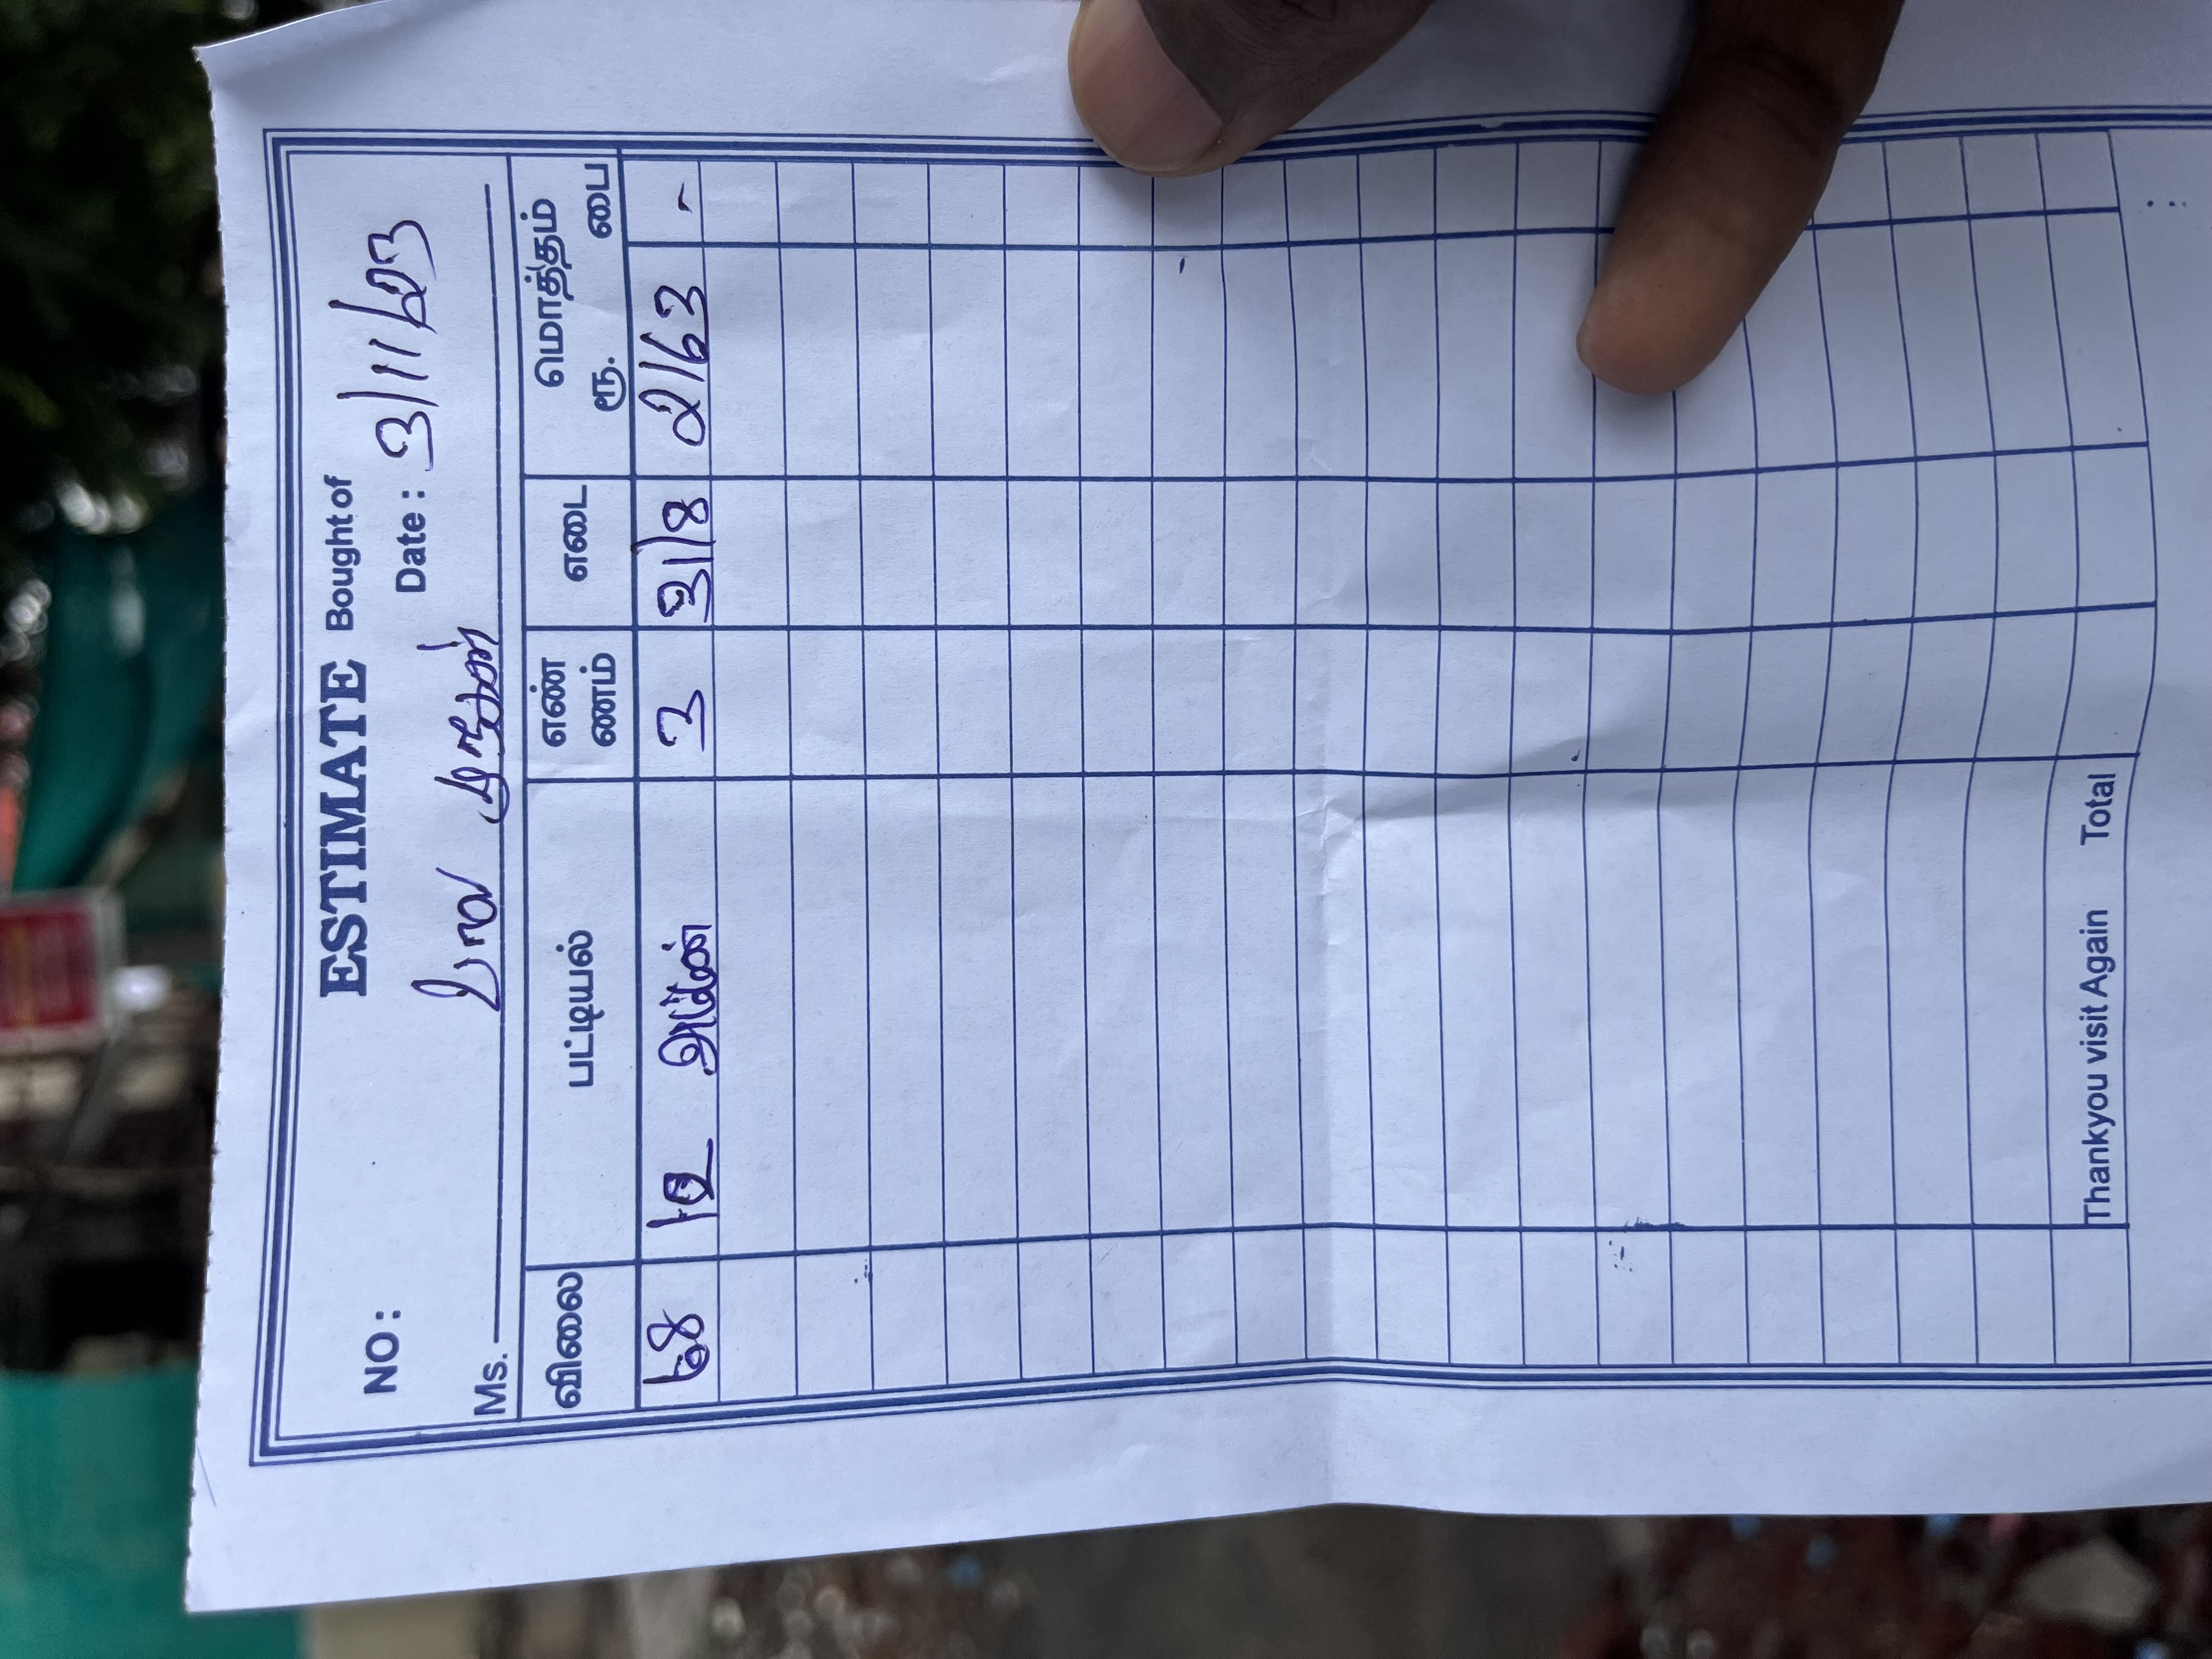 ESTIMATE Bought of
NO :
Date : 3/11/23
Ms. பால முருகன்
விலை பட்டியல் எண்ணம் எடை மொத்தம்
ரூ. பை
68 12 அம்மன் 3 31/8 2163 -
Thankyou visit Again Total